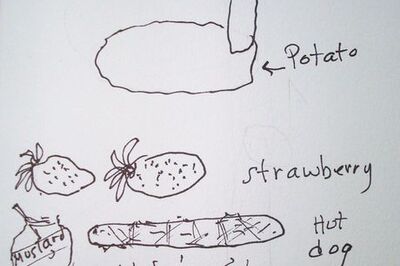 Potato
strawberry
Mustard
Hot
dog